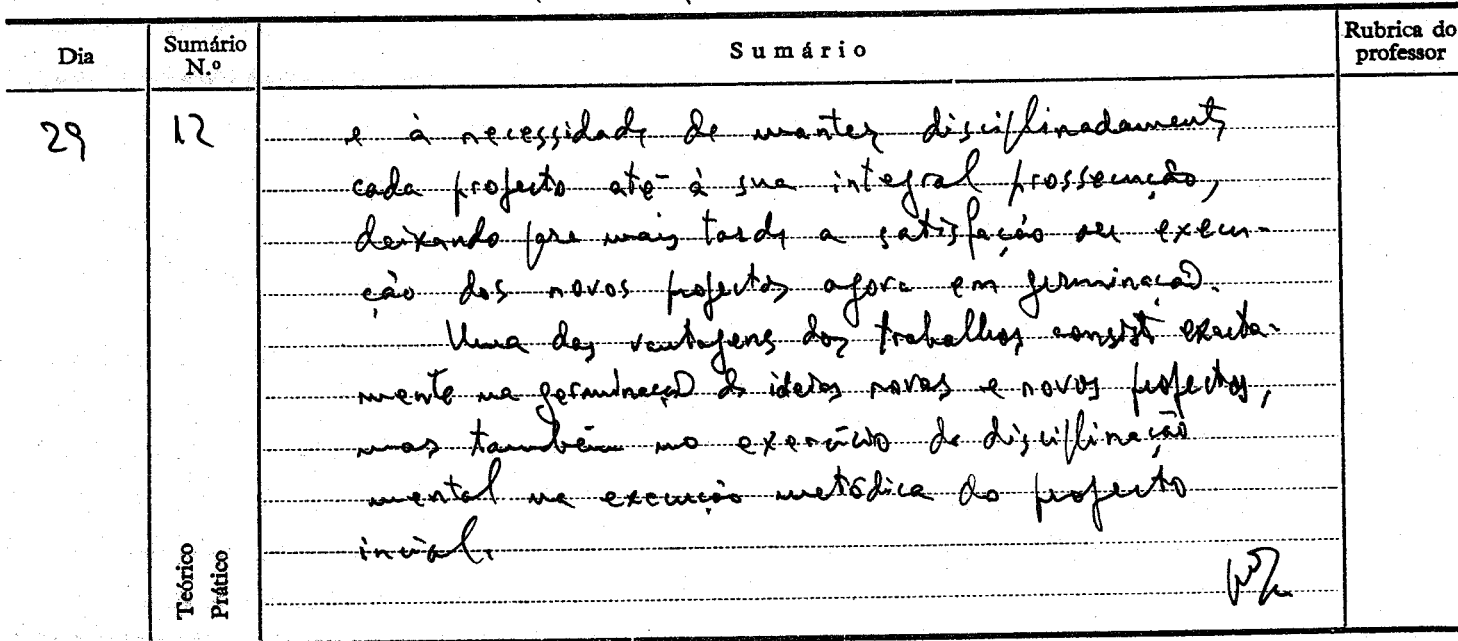 Dia
Sumário N.º
Sumário
Rubrica do professor
29
12
e à necessidade de manter disciplinadamente
cada projecto até à sua integral prossecução,
deixando para mais tarde a satisfação ou execu-
ção dos novos projectos agora em germinação.
Uma das vantagens dos trabalhos consiste exacta-
mente na germinação de ideias novas e novos projectos,
mas também no exercício de disciplinação
mental na execução metódica do projecto
inicial.
Teórico
Prático